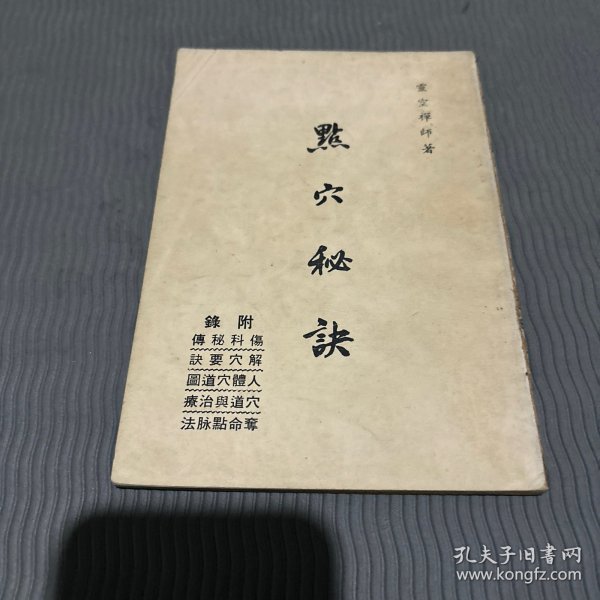 靈空禪師著
點穴秘訣
附錄
傷科秘傳
解穴要訣
人體穴道圖
穴道與治療
奪命點脉法
孔夫子旧书网
www.kongfz.com